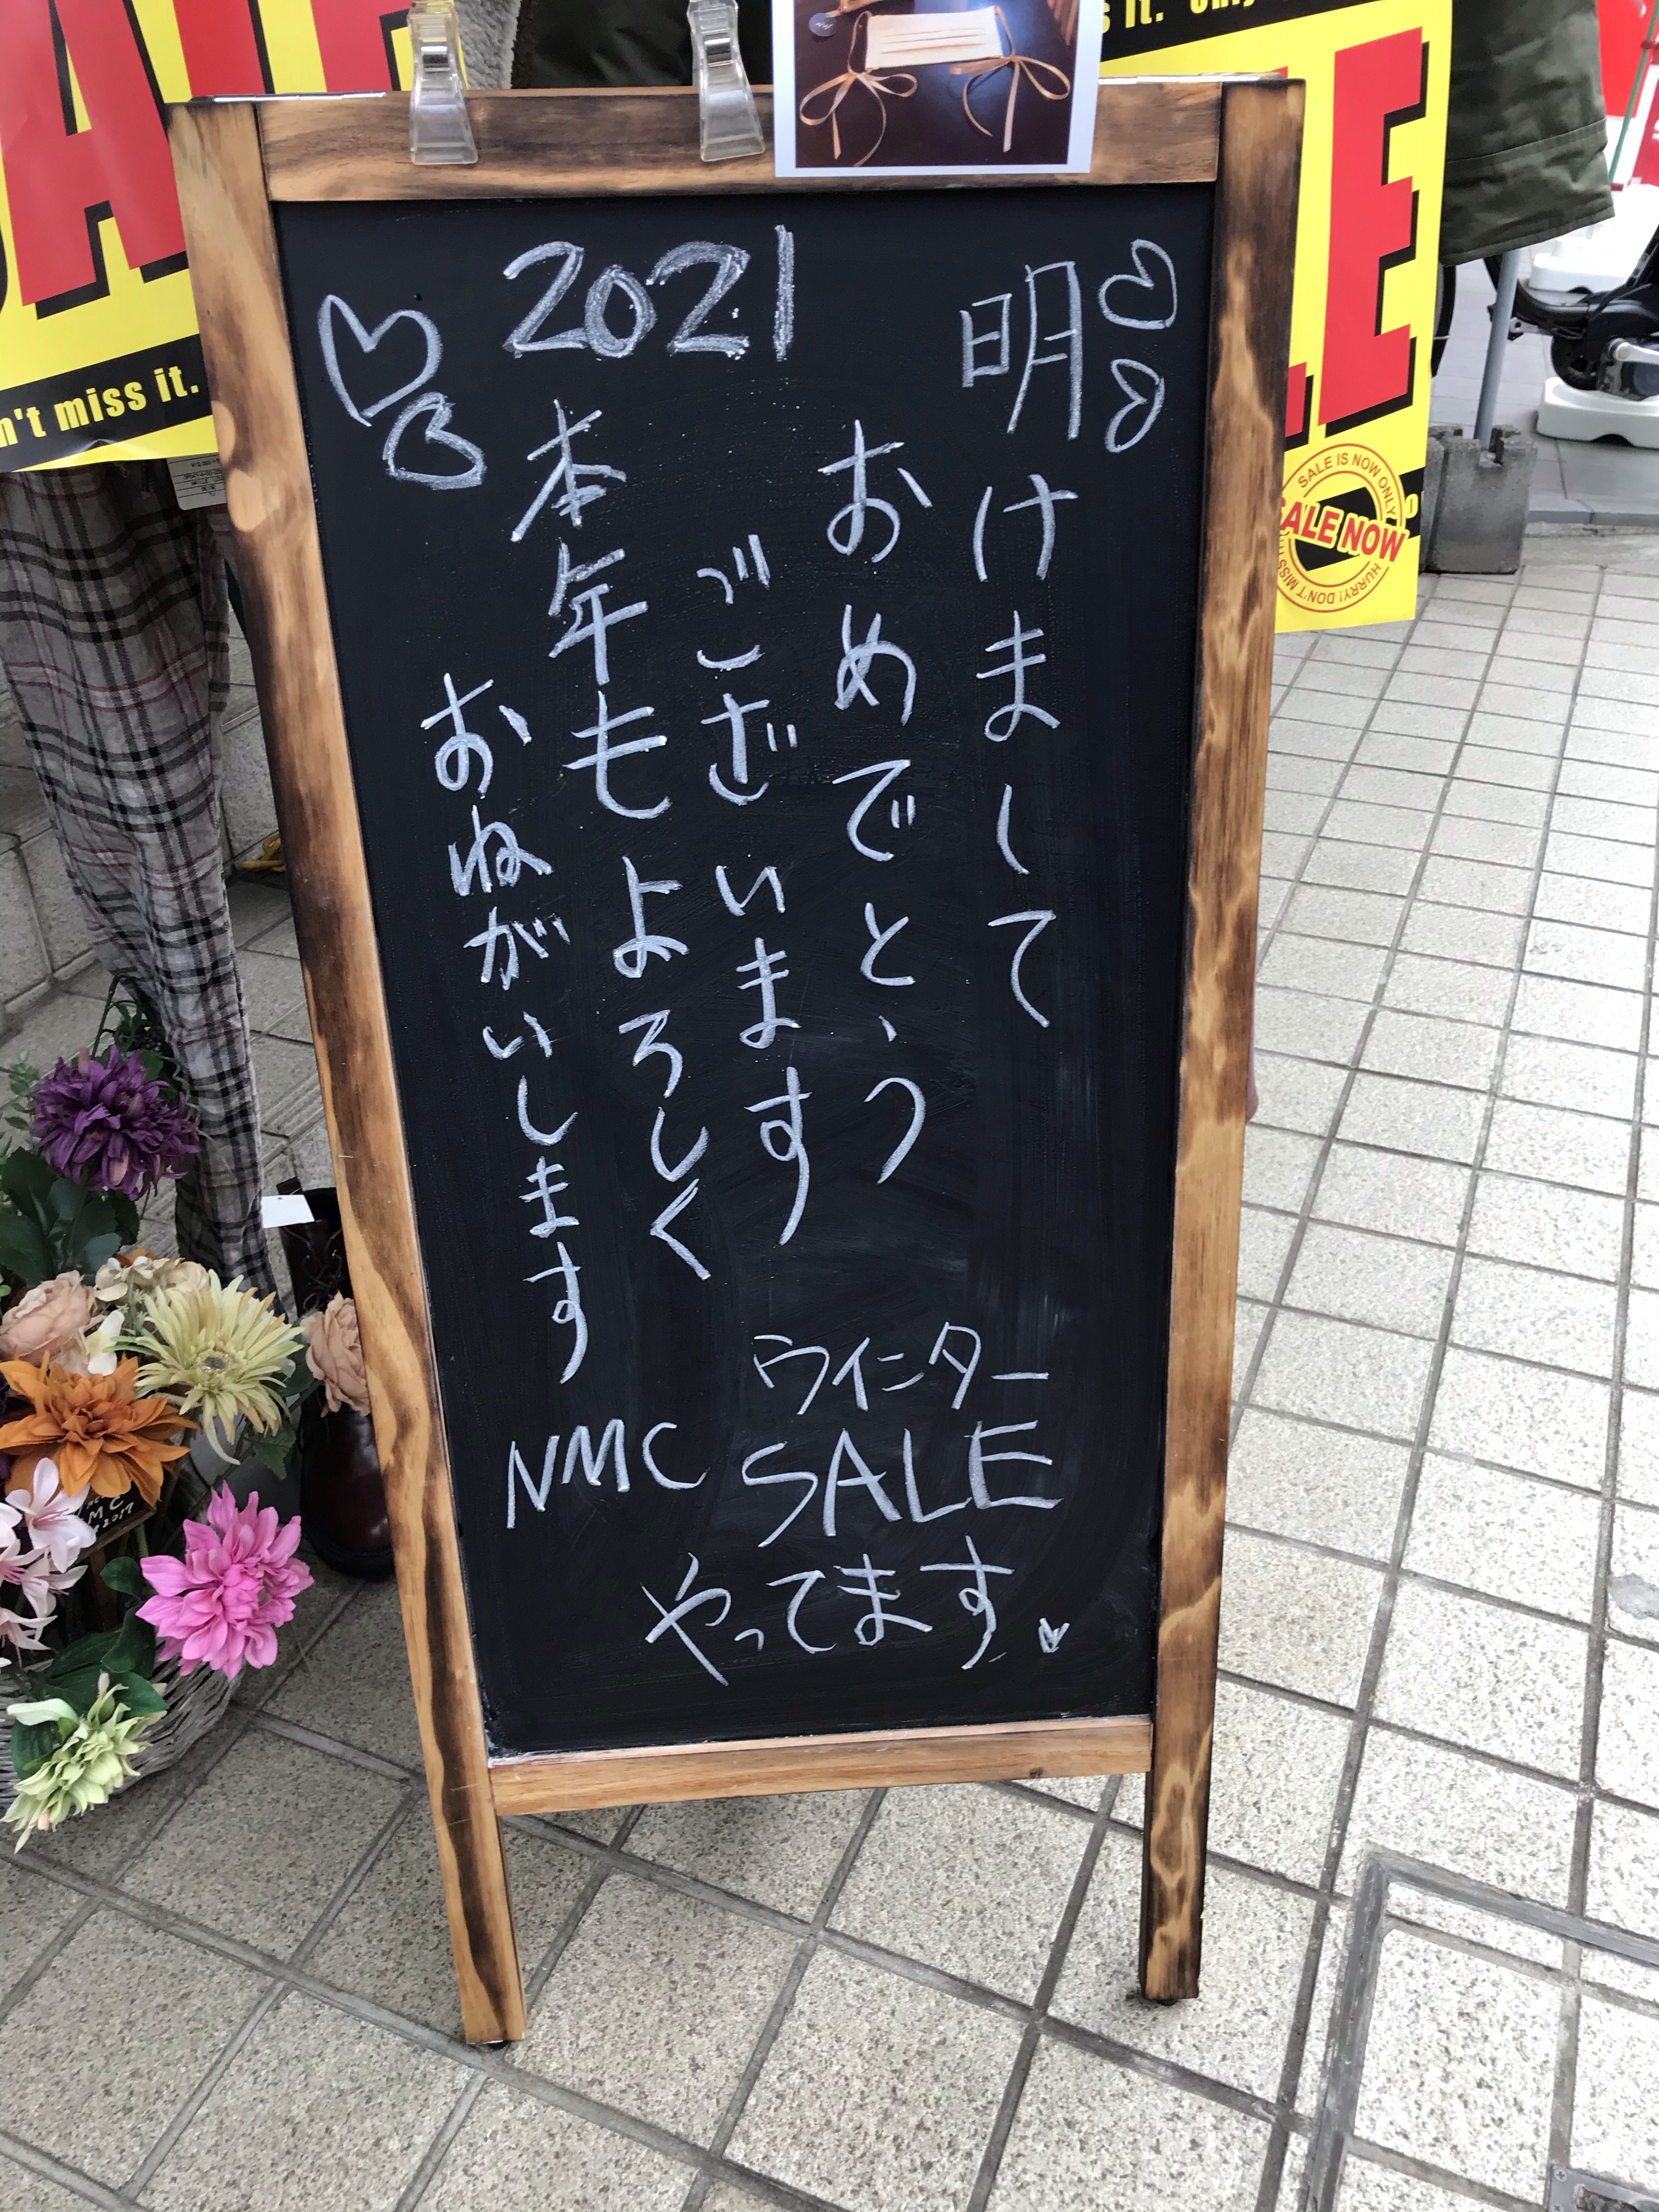 明けまして
おめでとう
ございます
2021
本年もよろしく
おねがいします
NMC
ウインター
SALE
やってます
SALE
n't miss it.
LE
s it.
SALE IS NOW ONLY
SALE NOW
HURRY! DON'T MISS